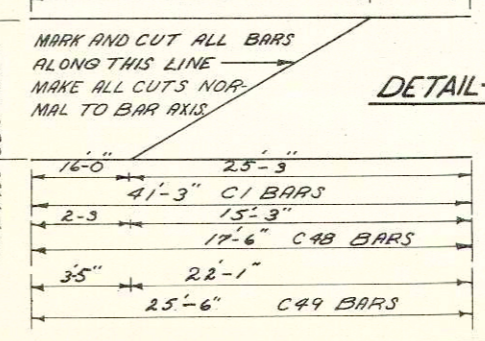 MARK AND CUT ALL BARS
ALONG THIS LINE
MAKE ALL CUTS NOR-
MAL TO BAR AXIS.
DETAIL-
16'-0" 25'-3"
41'-3" C1 BARS
2-3 15'-3"
17'-6" C48 BARS
3'5" 22'-1"
25'-6" C49 BARS